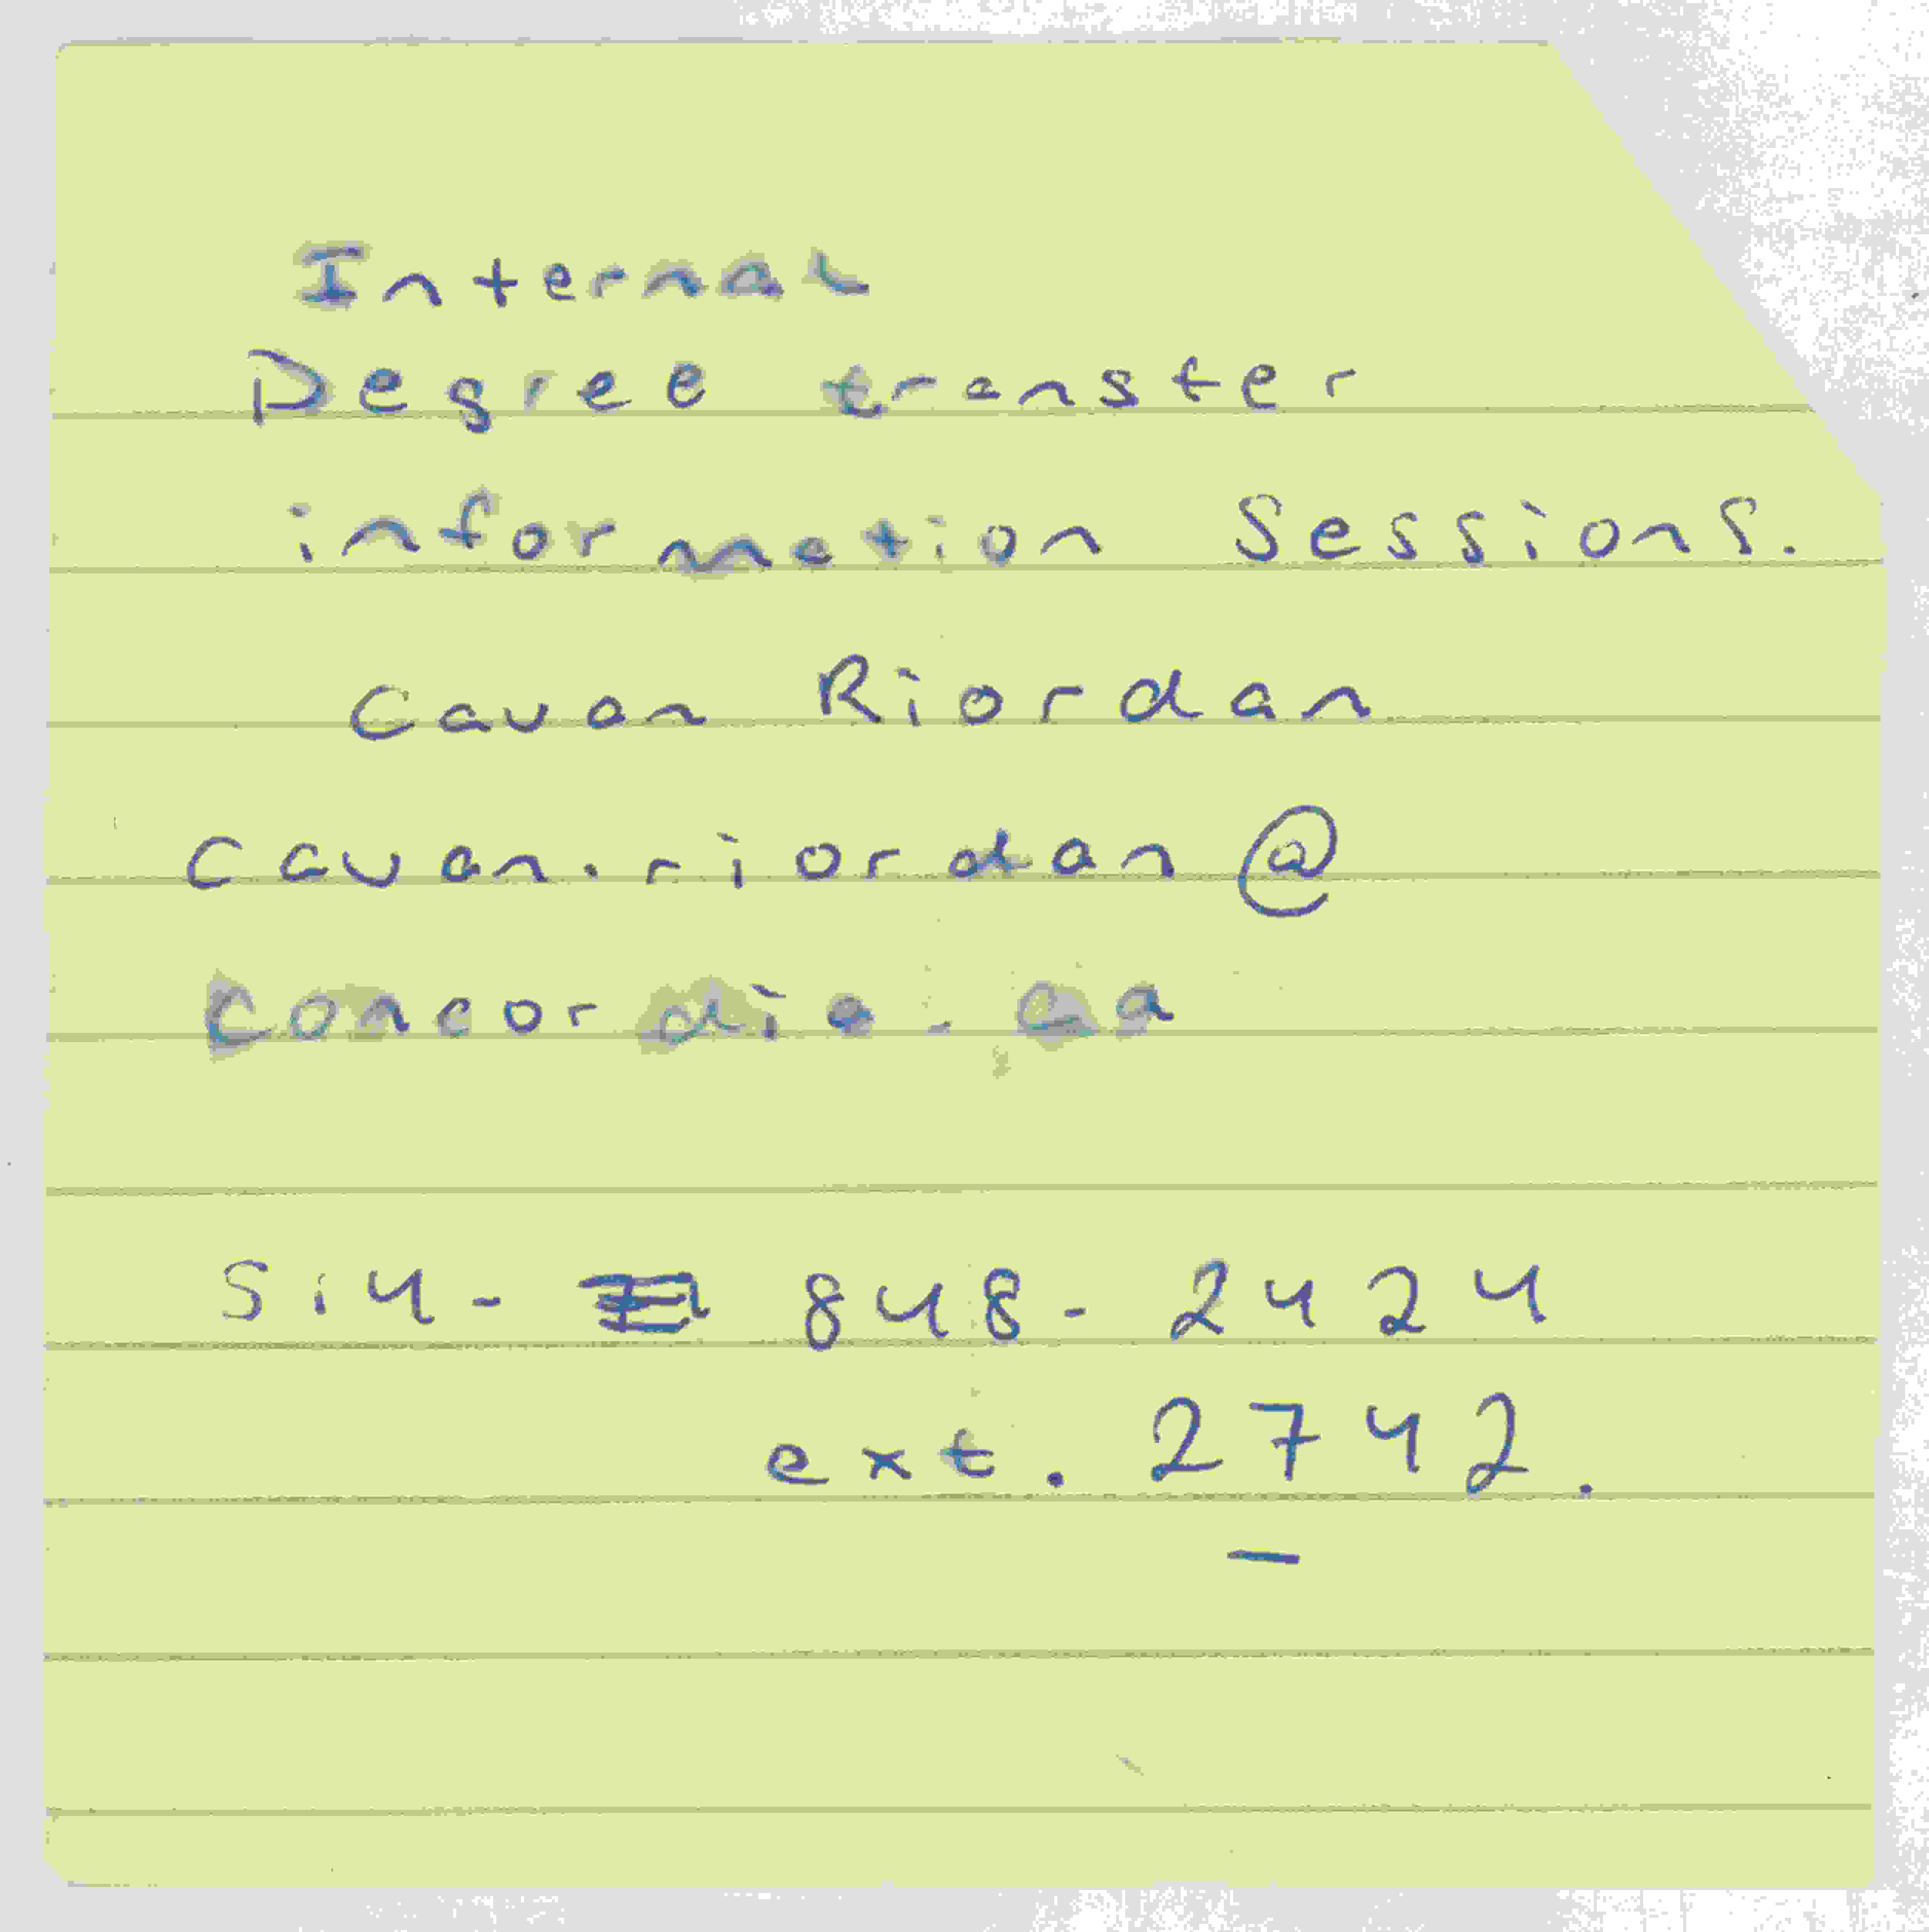 Internal
Degree transfer
information Sessions.
Cavan Riordan
cavan.riordan@
concordia.ca
514- 848-2424
ext. 2742.